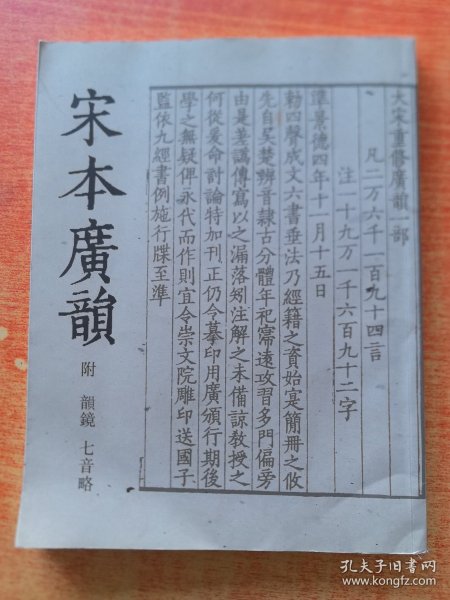 大宋重修廣韻一部
凡二万六千一百九十四言
注一十九万一千六百九十二字
準景德四年十一月十五日
勑四聲成文六書垂法乃經籍之資始寔簡冊之攸
先自吳楚辨音隸古分體年祀寖遠攻習多門偏旁
由是差譌傳寫以之漏落矧注解之未備諒敎授之
何從爰命討論特加刊正仍令摹印用廣頒行期後
學之無疑俾永代而作則宜令崇文院雕印送國子
監依九經書例施行牒至準
宋本廣韻
附 韻鏡 七音略
孔夫子旧书网
www.kongfz.com